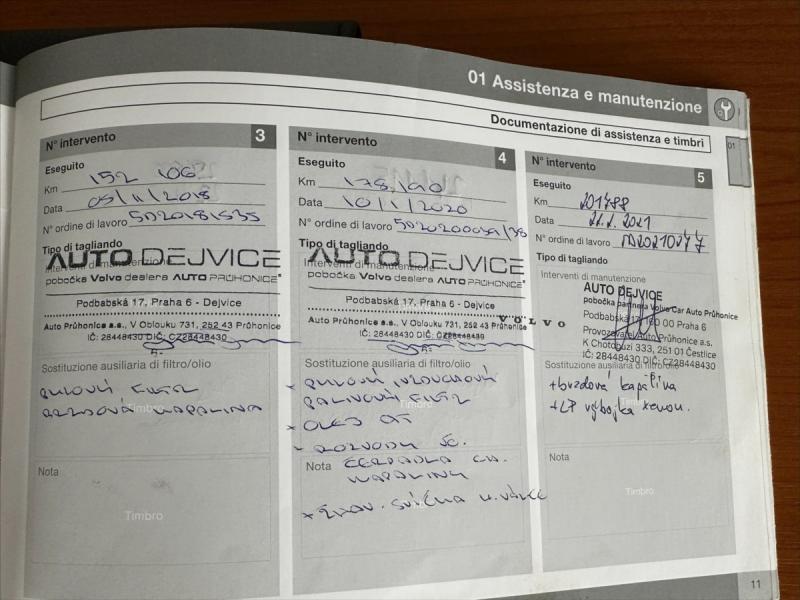 01 Assistenza e manutenzione
Documentazione di assistenza e timbri
01
N° intervento 3
Eseguito
Km 152 106
Data 05/11/2018
N° ordine di lavoro
Tipo di tagliando
Interventi di manutenzione
AUTO DEJVICE
pobočka Volvo dealera AUTO PRŮHONICE
Podbabská 17, Praha 6 - Dejvice
Auto Průhonice a.s., V Oblouku 731, 252 43 Průhonice
IČ: 28448430 DIČ: CZ28448430
Sostituzione ausiliaria di filtro/olio
pylový filtr
brzdová kapalina
Nota
Timbro
N° intervento 4
Eseguito
Km 178,190
Data 10/11/2020
N° ordine di lavoro
Tipo di tagliando
Interventi di manutenzione
AUTO DEJVICE
pobočka Volvo dealera AUTO PRŮHONICE
Podbabská 17, Praha 6 - Dejvice
Auto Průhonice a.s., V Oblouku 731, 252 43 Průhonice
IČ: 28448430 DIČ: CZ28448430
VOLVO
Sostituzione ausiliaria di filtro/olio
pylový vzduchový
palivový filtr
Timbro
olej
rozvody
čerpadla
Nota
kapaliny
N° intervento 5
Eseguito
Km 201488
Data
N° ordine di lavoro
Tipo di tagliando
Interventi di manutenzione
AUTO DEJVICE
pobočka partnera Volvo Car Auto Průhonice
Podbabská 17, 160 00 Praha 6
Provozovatel Auto Průhonice a.s.
K Chotobuzi 333, 251 01 Čestlice
IČ: 28448430 DIČ: CZ28448430
Sostituzione ausiliaria di filtro/olio
+ brzdová kapalina
+ LP výbojka xenon.
Timbro
Nota
Timbro
11